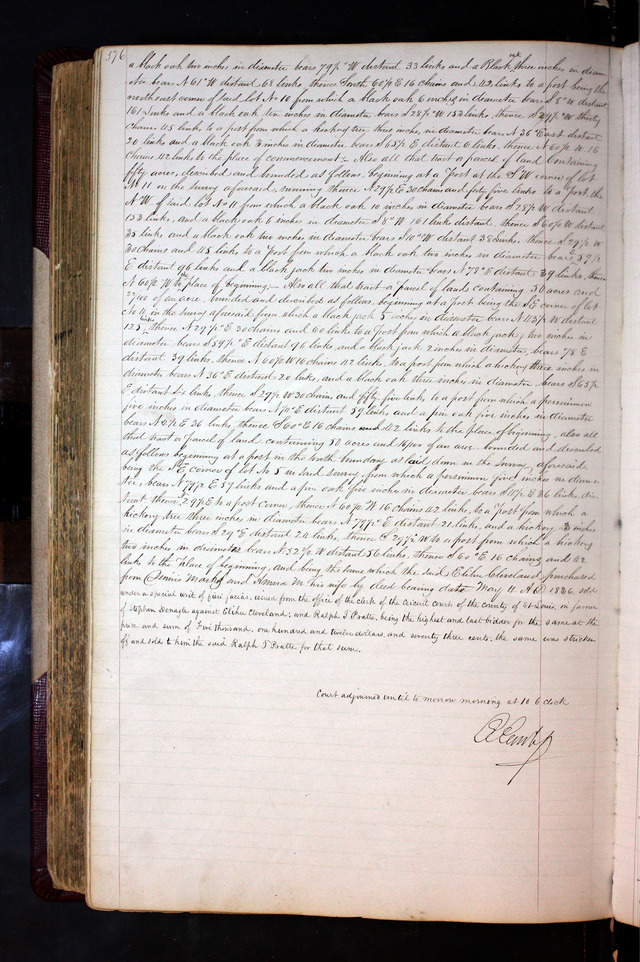 576
a black oak two inches in diameter bears 79½° W distant 33 links and a Black oak three inches in diam
eter bears N 61° W distant 68 links, thence South 60½ E 16 chains and 42 links to a post being the
northeast corner of said lot No 10 from which a black oak 6 inches in diameter bears S 8° W distant
161 links and a black oak ten inches in diameter bears S 28½ W 153 links, thence S 29½ W thirty
chains 45 links to a post from which a hickory tree three inches in diameter bears N 36° East distant
20 links and a black oak 3 inches in diameter bears S 63½ E distant 6 links, thence N 60½ W 16
chains 42 links to the place of commencement;- Also all that tract or parcel of land containing
fifty acres, described and bounded as follows, beginning at a post at the S W corner of lot
No 11 on the survey aforesaid, running thence N 29½ E 30 chains and forty five links to a post the
N W of said lot No 11 from which a black oak 10 inches in diameter bears S 28½ W distant
153 links, and a black oak 6 inches in diameter S 8° W 161 link distant, thence S 60½ W distant
35 links, and a black oak two inches in diameter bears S 10° W distant 38 links, thence S 29½ W
30 chains and 45 links to a post from which a black oak two inches in diameter bears S 59½
E distant 96 links and a black jack two inches in diameter bears N 78° E distant 39 links, thence
N 60½ W to the place of beginning;- Also all that tract or parcel of land containing 50 acres and
27/100 of an acre, bounded and described as follows, beginning at a post being the S E corner of lot
No 4 in the survey aforesaid from which a black jack 5 inches in diameter bears N 43½ W distant
125 links, thence N 29½ E 30 chains and 60 links to a post from which a black jack, two inches in
diameter bears S 59½° E distant 96 links, and a black jack 2 inches in diameter, bears 78 E
distant 39 links, thence N 60½ W 16 chains 42 links, to a post from which a hickory three inches in
diameter bears N 36° E distant 20 links, and a black oak three inches in diameter bears S 63½
E distant links, thence S 29½ W 30 chains and fifty five links to a post from which a persimmon
five inches in diameter bears N 70° E distant 59 links and a pin oak five inches in diameter
bears N 4½ E 36 links, thence S 60° E 16 chains and 42 links to the place of beginning, also all
that tract or parcel of land containing 50 acres and 16/100 of an acre bounded and described
as follows beginning at a post in the South boundary as laid down in the survey aforesaid
being the S E corner of lot No 5 in said survey from which a persimmon five inches in diame
ter, bears N 79½ E 59 links and a pin oak five inches in diameter bears S 4½ E 36 links, dis
tant thence S 29½ E to a post corner, thence N 60½ W 16 chains 42 links, to a post from which a
hickory tree three inches in diameter bears N 79½° E distant 21 links, and a hickory 3 inches
in diameter bears S 29° E distant 24 links, thence S 29½ W to a post from which a hickory
two inches in diameter bears N 32½ W distant 56 links, thence S 60° E 16 chains and 42
links to the place of beginning and being the same which the said Elihu Cleveland, purchased
from Dennis and his wife by deed bearing date May 11 A D 1836, sold
under a special writ of fieri facias, issued from the office of the clerk of the Circuit Court of the county of St Louis, in favor
of Stephen against Elihu Cleveland; and Ralph T Pratte, being the highest and last bidder for the same at the
price and sum of Five thousand, one hundred and twelve dollars, and seventy three cents, the same was stricken
off and sold to him the said Ralph T Pratte for that sum.
Court adjourned until to morrow morning at 10 O clock